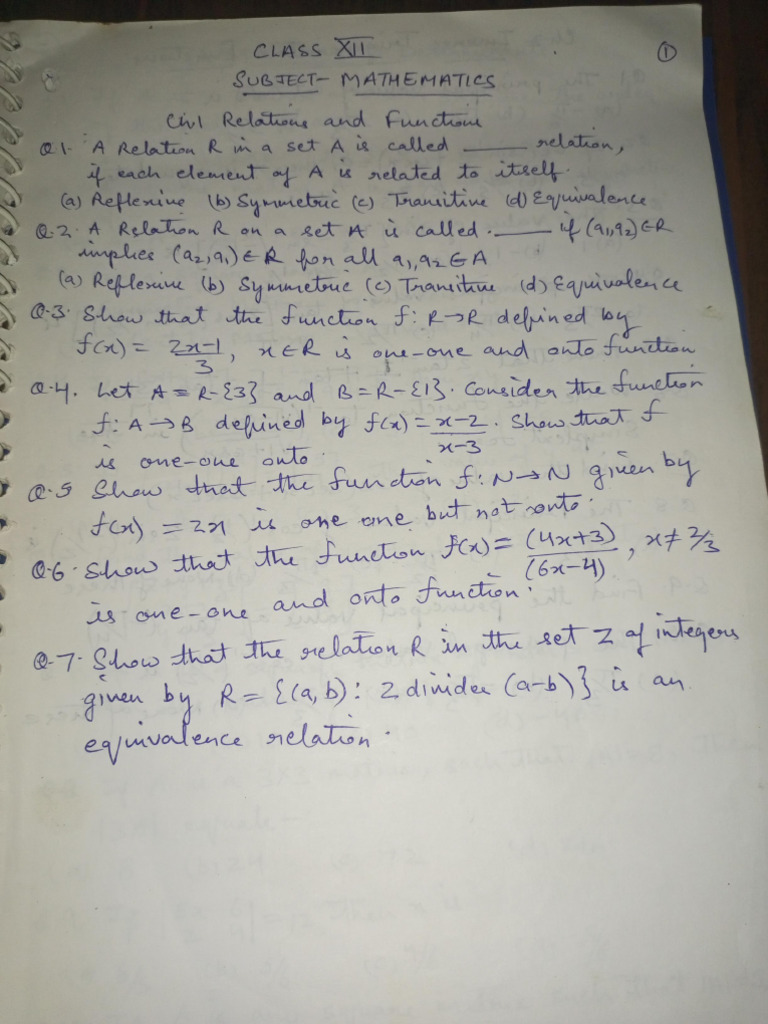 CLASS XII
①
SUBJECT- MATHEMATICS
Ch1 Relations and Functions
Q1. A Relation R in a set A is called ____ relation,
if each element of A is related to itself.
(a) Reflexive (b) Symmetric (c) Transitive (d) Equivalence
Q.2. A Relation R on a set A is called ____ if (a1,a2)∈R
implies (a2,a1)∈R for all a1,a2∈A
(a) Reflexive (b) Symmetric (c) Transitive (d) Equivalence
Q.3. Show that the function f: R→R defined by
f(x) = (2x-1)/3, x∈R is one-one and onto function
Q.4. Let A = R-{3} and B = R-{1}. Consider the function
f: A→B defined by f(x) = (x-2)/(x-3). Show that f
is one-one onto.
Q.5 Show that the function f: N→N given by
f(x) = 2x is one one but not onto.
Q.6. Show that the function f(x) = (4x+3)/(6x-4), x≠2/3
is one-one and onto function.
Q.7. Show that the relation R in the set Z of integers
given by R = {(a,b): 2 divides (a-b)} is an
equivalence relation.